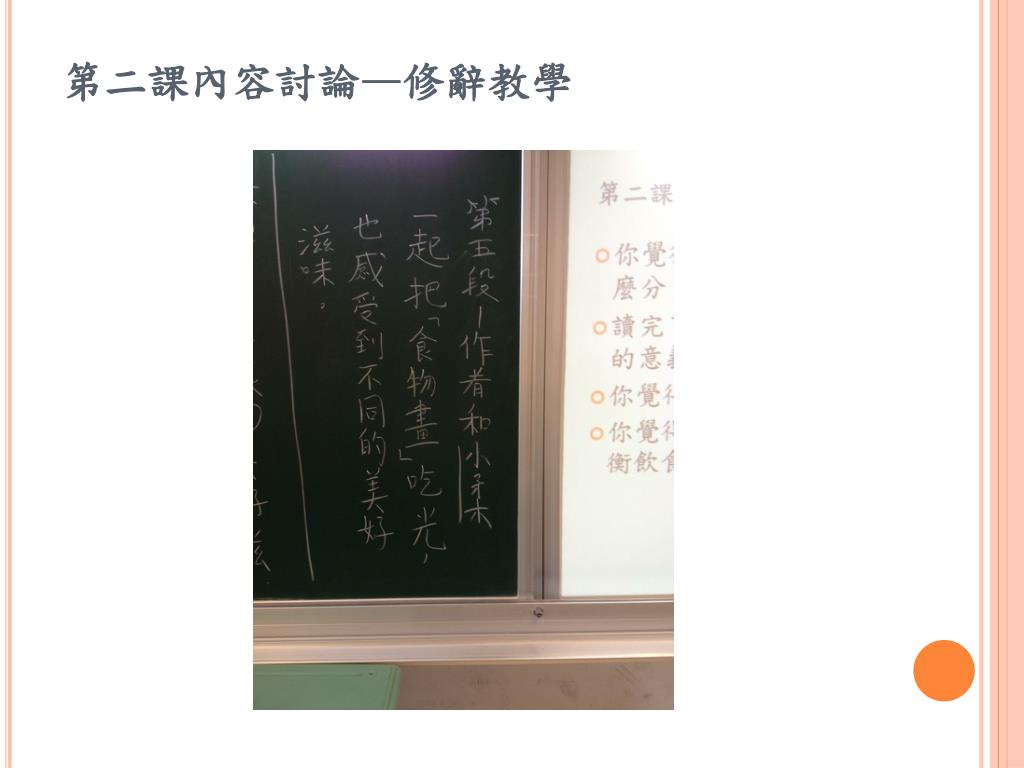 第二課內容討論—修辭教學
第五段—作者和小柔
一起把「食物畫」吃光，
也感受到不同的美好
滋味。
第二課
你覺得
麼分
讀完
的意義
你覺得
你覺得
衡飲食